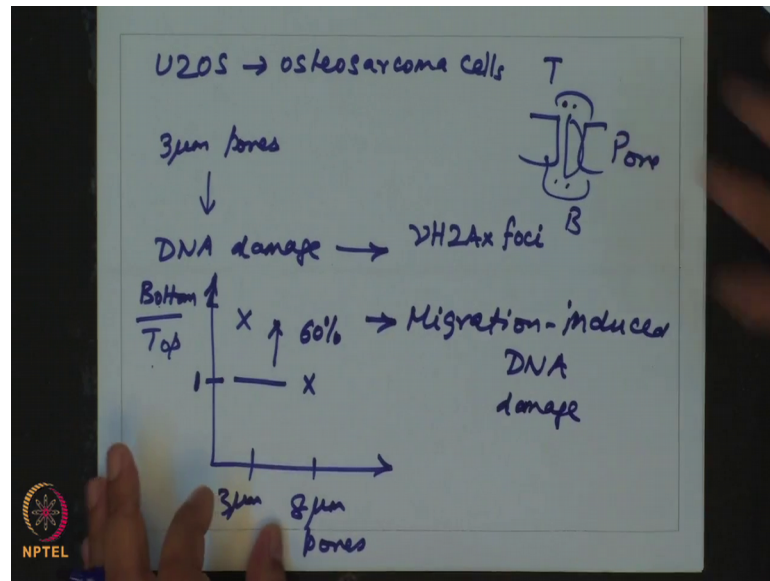 U2OS → osteosarcoma cells
T
3μm pores
Pore
B
DNA damage → γH2Ax foci
Bottom
Top
X
60%
→ Migration-induced
DNA
damage
1
X
3μm
8μm
pores
NPTEL